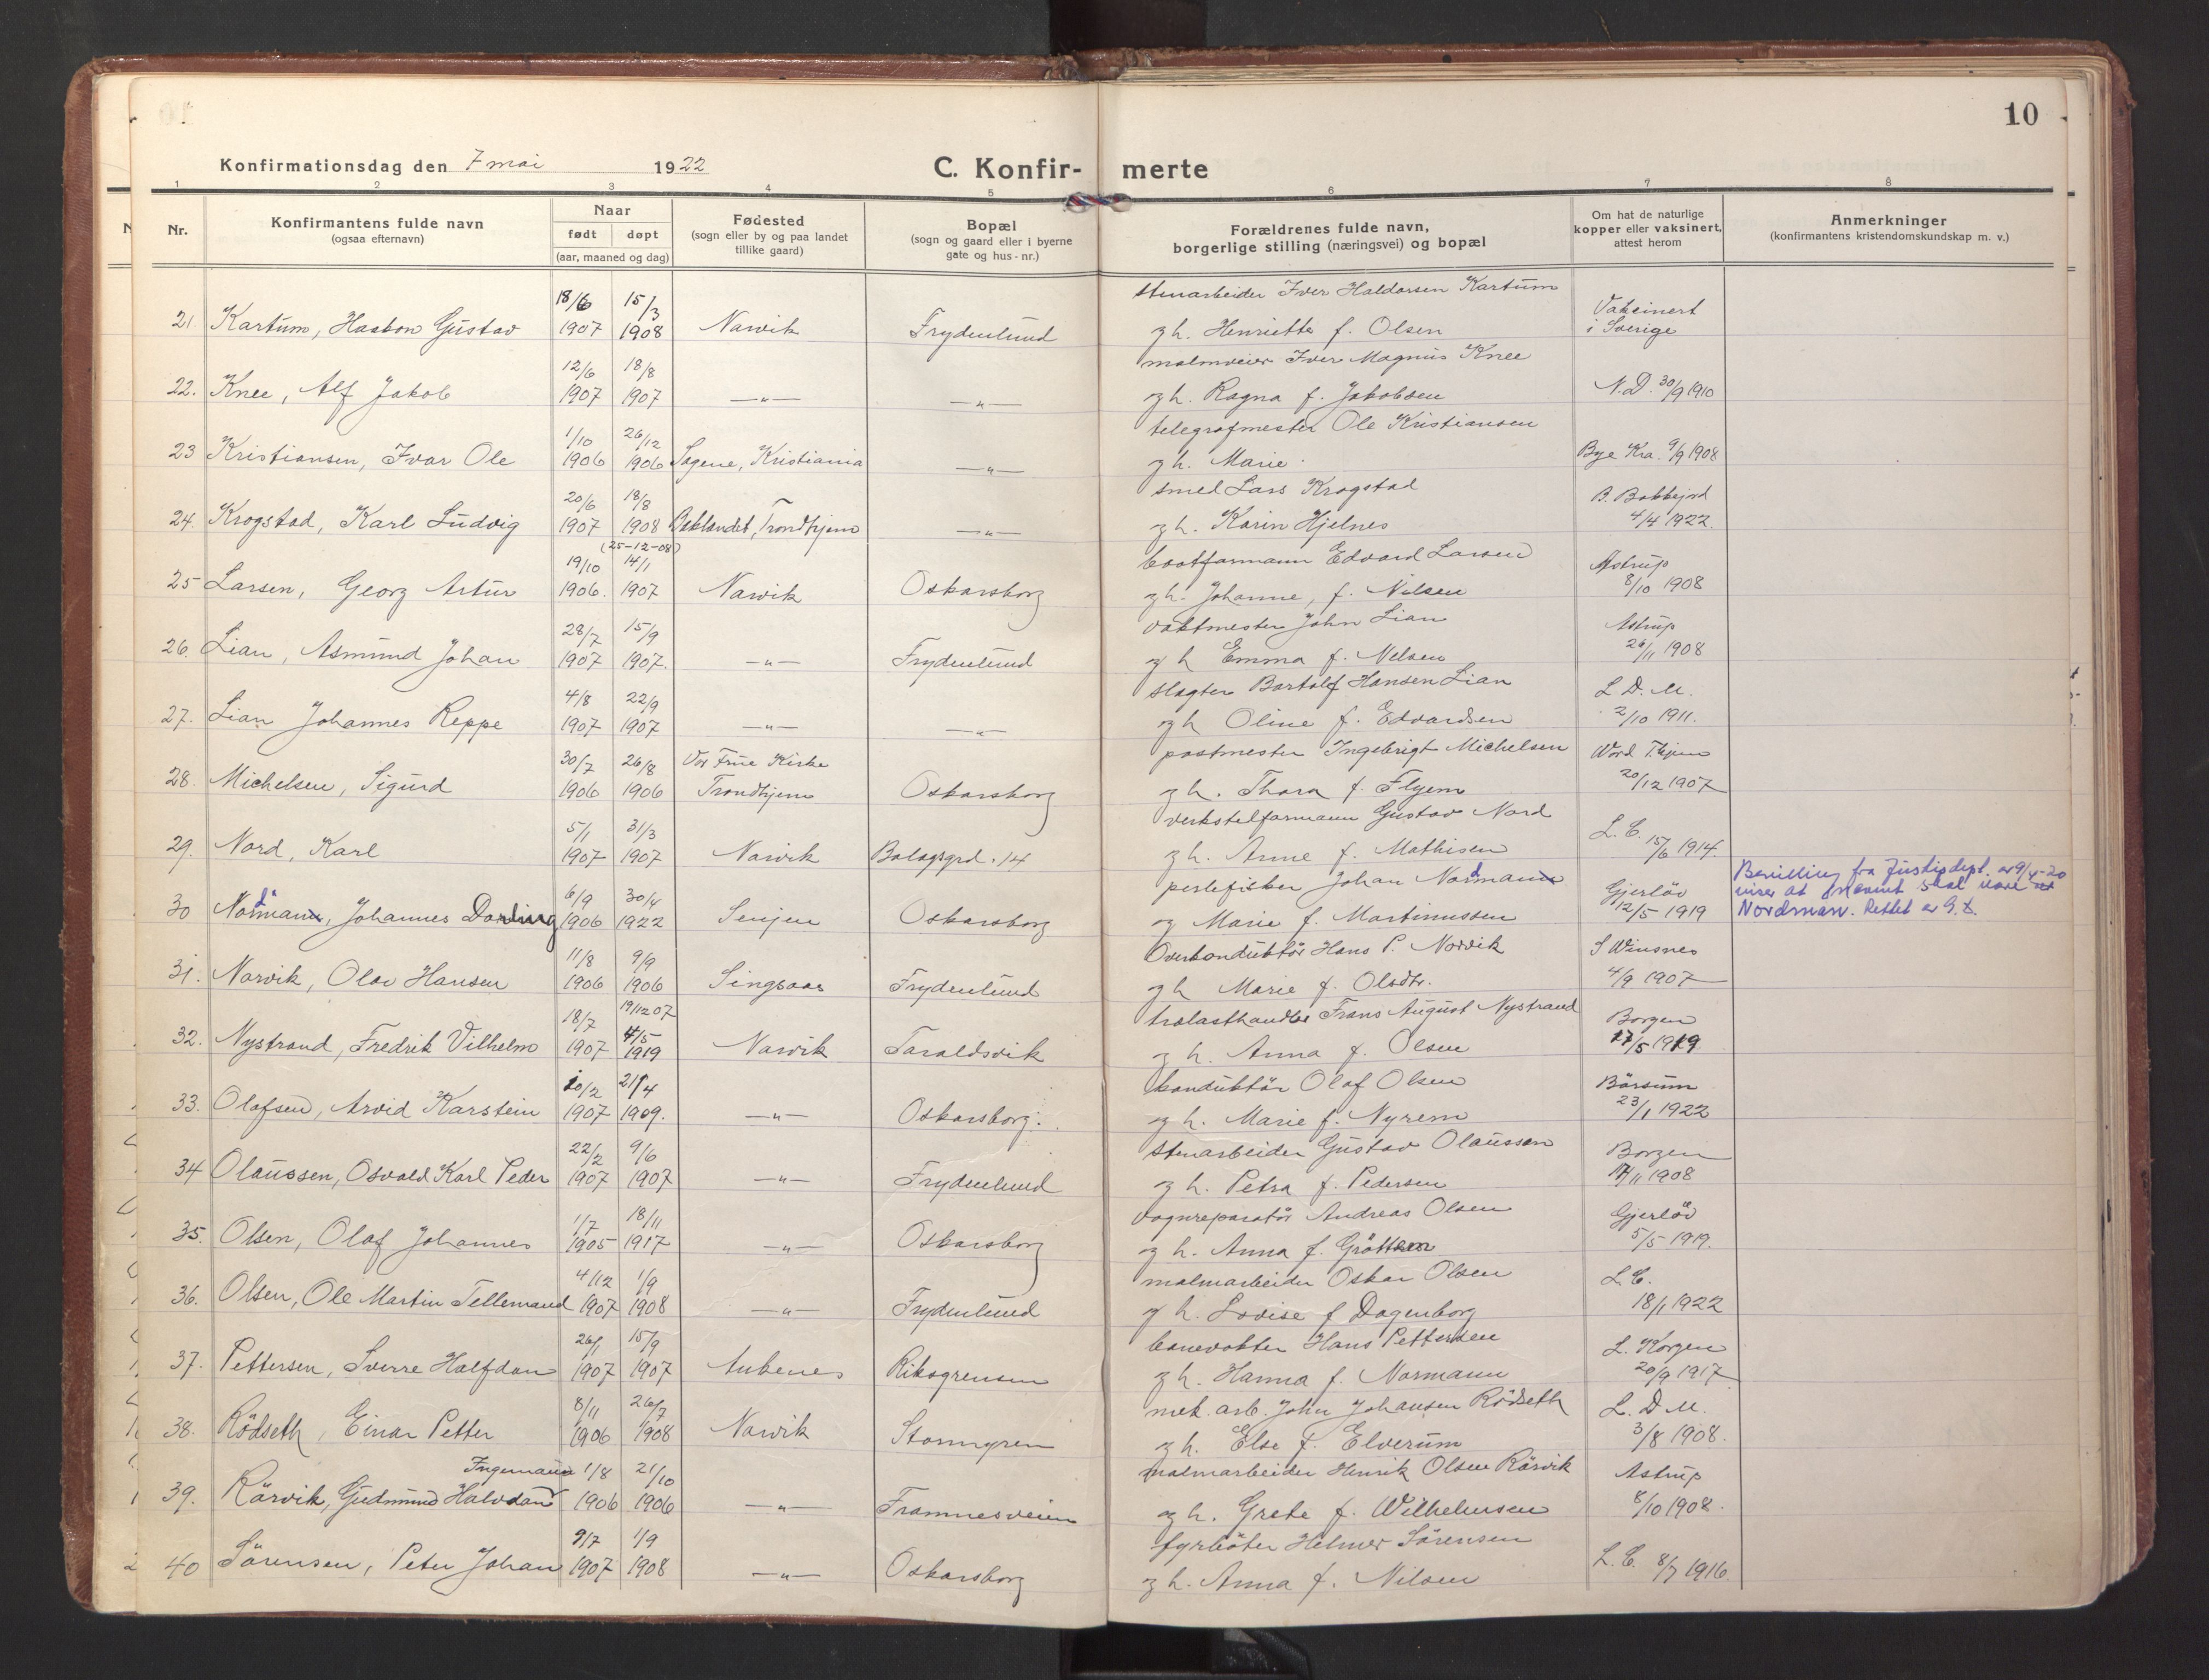 10
Konfirmationsdag den 7 mai 1922
C. Konfir- merte
1 2 3 4 5 6 7 8
Nr.
Konfirmantens fulde navn
(ogsaa efternavn)
Naar
født døpt
(aar, maaned og dag)
Fødested
(sogn eller by og paa landet
tillike gaard)
Bopæl
(sogn og gaard eller i byerne
gate og hus-nr.)
Forældrenes fulde navn,
borgerlige stilling (næringsvei) og bopæl
Om hat de naturlige
kopper eller vaksinert,
attest herom
Anmerkninger
(konfirmantens kristendomskundskap m. v.)
18/6 15/3 stenarbeider Iver Haldorsen Kartum Vaksinert
21. Kartum, Haakon Gustav 1907 1908 Narvik Frydenlund og h. Henriette f. Olsen i Sverige
12/6 18/8 malmveier Iver Magnus Knee
22. Knee, Alf Jakob 1907 1907 —"— —"— og h. Ragna f. Jakobsen N.D. 30/9 1910
1/10 26/12 telegrafmester Ole Kristiansen
23 Kristiansen, Ivar Ole 1906 1906 Sagene, Kristiania —"— og h. Marie. Bye Kra. 9/9 1908
20/6 18/8 smed Lars Krogstad B. Bakkejord
24. Krogstad, Karl Ludvig 1907 1908 Baklandet, Trondhjem —"— og h. Karin Hjelnes 4/4 1922.
(25-12-08)
19/10 14/1 baatformann Edvard Larsen Astrup
25 Larsen, Georg Artur 1906. 1907 Narvik Oskarsborg og h. Johanne, f. Nilsen 8/10 1908
28/7 15/9 vaktmester John Lian Astrup
26. Lian, Asmund Johan 1907 1907. —"— Frydenlund og h Emma f. Nilsen 26/11 1908
4/8 22/9 slagter Bartolf Hansen Lian L. D. M.
27. Lian Johannes Reppe 1907 1907 —"— —"— og h Oline f. Edvardsen 2/10 1911.
30/7 26/8 Vor Frue Kirke postmester Ingebrigt Michelsen Word Thjem
28. Michelsen, Sigurd 1906 1906 Trondhjem Oskarsborg og h. Thora f. Flyem 20/12 1907
5/1 31/3 verkstelformann Gustav Nord L. C.
29. Nord, Karl 1907 1907 Narvik Bolagsgrd. 14 og h. Anne f. Mathisen 15/6 1914.
6/9 30/4 perlefisker Johan Nordmann Gjerløv Bevilling fra Justisdept. av 9/4-20
30 Nordmann, Johannes Darling 1906 1922 Senjen Oskarsborg og Marie f. Martinussen 12/5 1919 viser at navnet skal være
Nordman. Rettet av G.S.
11/8 9/9 Overkonduktør Hans P. Norvik S Winsnes
31. Norvik, Olav Hansen 1906 1906 Singsaas Frydenlund og h Marie f. Olsdtr. 4/9 1907
19/12 07
18/7 4/5 trelasthandler Frans August Nystrand Borgen
32. Nystrand, Fredrik Vilhelm 1907 1919 Narvik Taraldsvik og h. Anna f. Olsen 17/5 1919.
10/2 21/4 konduktør Olaf Olsen Børsum
33. Olafsen, Arvid Karstein 1907 1909. —"— Oskarsborg. og h. Marie f. Nyrem 23/1 1922
22/2 9/6 stenarbeider Gustav Olaussen Borgen
34 Olaussen, Osvald Karl Peder 1907 1907 —"— Frydenlund og h. Petra f. Pedersen 17/11 1908
1/7 18/11 vognreparatør Andreas Olsen Gjerløv
35. Olsen, Olaf Johannes 1905 1917 —"— Oskarsborg og h. Anna f. Grøttem 5/5 1919.
4/12 1/9 malmarbeider Oskar Olsen L. C.
36. Olsen, Ole Martin Tellemand 1907 1908 —"— Frydenlund og h. Lovise f Dagenborg 18/1 1922
26/1 15/9 banevokter Hans Pettersen L. Korgen
37. Pettersen, Sverre Halfdan 1907 1907 Ankenes Riksgrensen og h. Hanna f. Normann 20/9 1917
8/11 26/7 mek. arb. John Johansen Rødseth L. D M.
38. Rødseth, Einar Petter 1906 1908 Narvik Stormyren og h. Else f. Elverum 3/8 1908.
Ingemann 1/8 21/10 malmarbeider Henrik Olsen Rørvik Astrup
39. Rørvik, Gudmund Halvdan 1906 1906 —"— Framnesveien og h. Grete f. Wilhelmsen 8/10 1908.
9/7 1/9 fyrbøter Helmer Sørensen
40 Sørensen, Peter Johan 1907 1908 —"— Oskarsborg og h. Anna f. Nilsen L. C. 8/7 1916.